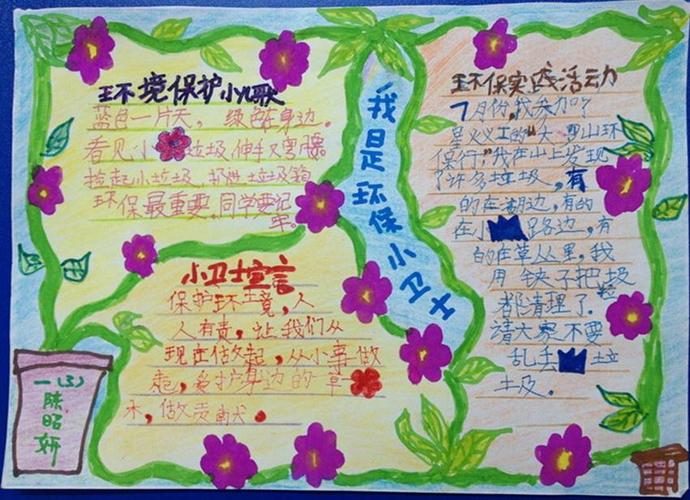 环境保护小儿歌
蓝色一片天，绿色在身边。
看见小垃圾，伸手又弯腰。
捡起小垃圾，扔进垃圾箱
环保最重要，同学要记
牢。
我是环保小卫士
小卫士宣言
保护环境，人
人有责，让我们从
现在做起，从小事做
起，爱护身边的一草一
木，做贡献。
环保实践活动
7月份，我参加了
山环
保行"，我在山上发现
了许多垃圾，有
的在湖边，有的
在小路边，有
的在草丛里，我
用铗子把垃圾
都清理了。
请大家不要
乱丢垃
圾。
一(3)
陈昭妍